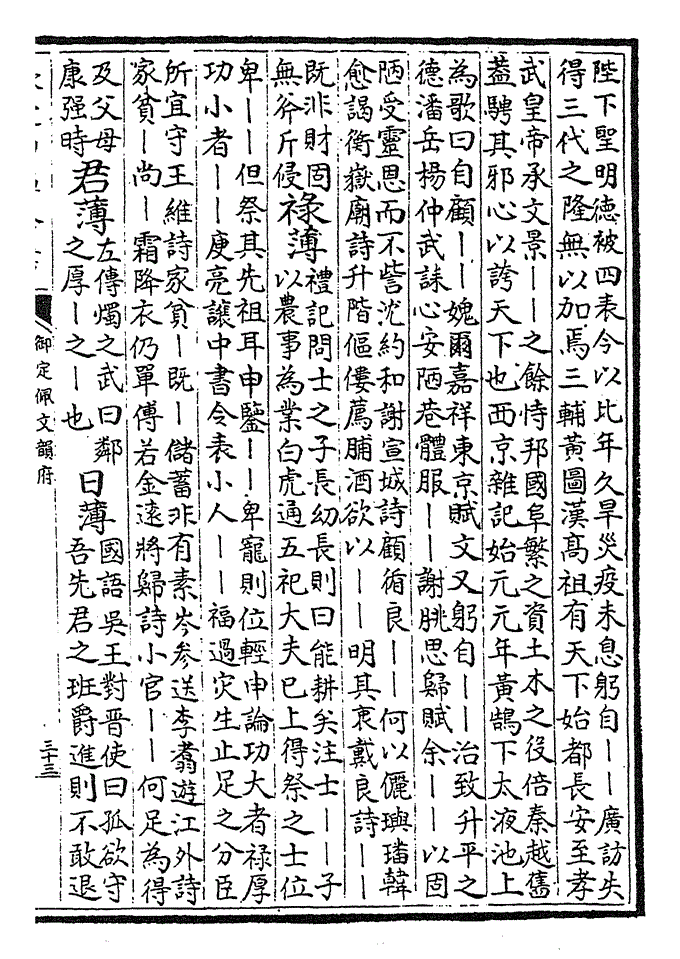 陛下聖明德被四表今以比年久旱災疫未息躬自——廣訪失
得三代之隆無以加焉三輔黃圖漢高祖有天下始都長安至孝
武皇帝承文景——之餘恃邦國阜繁之資土木之役倍秦越舊
葢騁其邪心以誇天下也西京雜記始元元年黃鵠下太液池上
為歌曰自顧——媿爾嘉祥東京賦文又躬自——治致升平之
德潘岳楊仲武誄心安陋巷體服——謝朓思歸賦余——以固
陋受靈恩而不訾沈約和謝宣城詩顧循良——何以儷璵璠韓
愈謁衡嶽廟詩升階傴僂薦脯酒欲以——明其衷戴良詩——
既非財固
無斧斤侵
祿薄
禮記問士之子長幼長則曰能耕矣注士——子
以農事為業白虎通五祀大夫已上得祭之士位
卑——但祭其先祖耳申鑒——卑寵則位輕申論功大者祿厚
功小者——庾亮讓中書令表小人——福過灾生止足之分臣
所宜守王維詩家貧—既—儲蓄非有素岑參送李翥遊江外詩
家貧—尚—霜降衣仍單傅若金遠將歸詩小官——何足為得
及父母
康强時
君薄
左傳燭之武曰鄰
之厚—之—也
日薄
國語吳王對晉使曰孤欲守
吾先君之班爵進則不敢退
御定佩文韻府
三十三